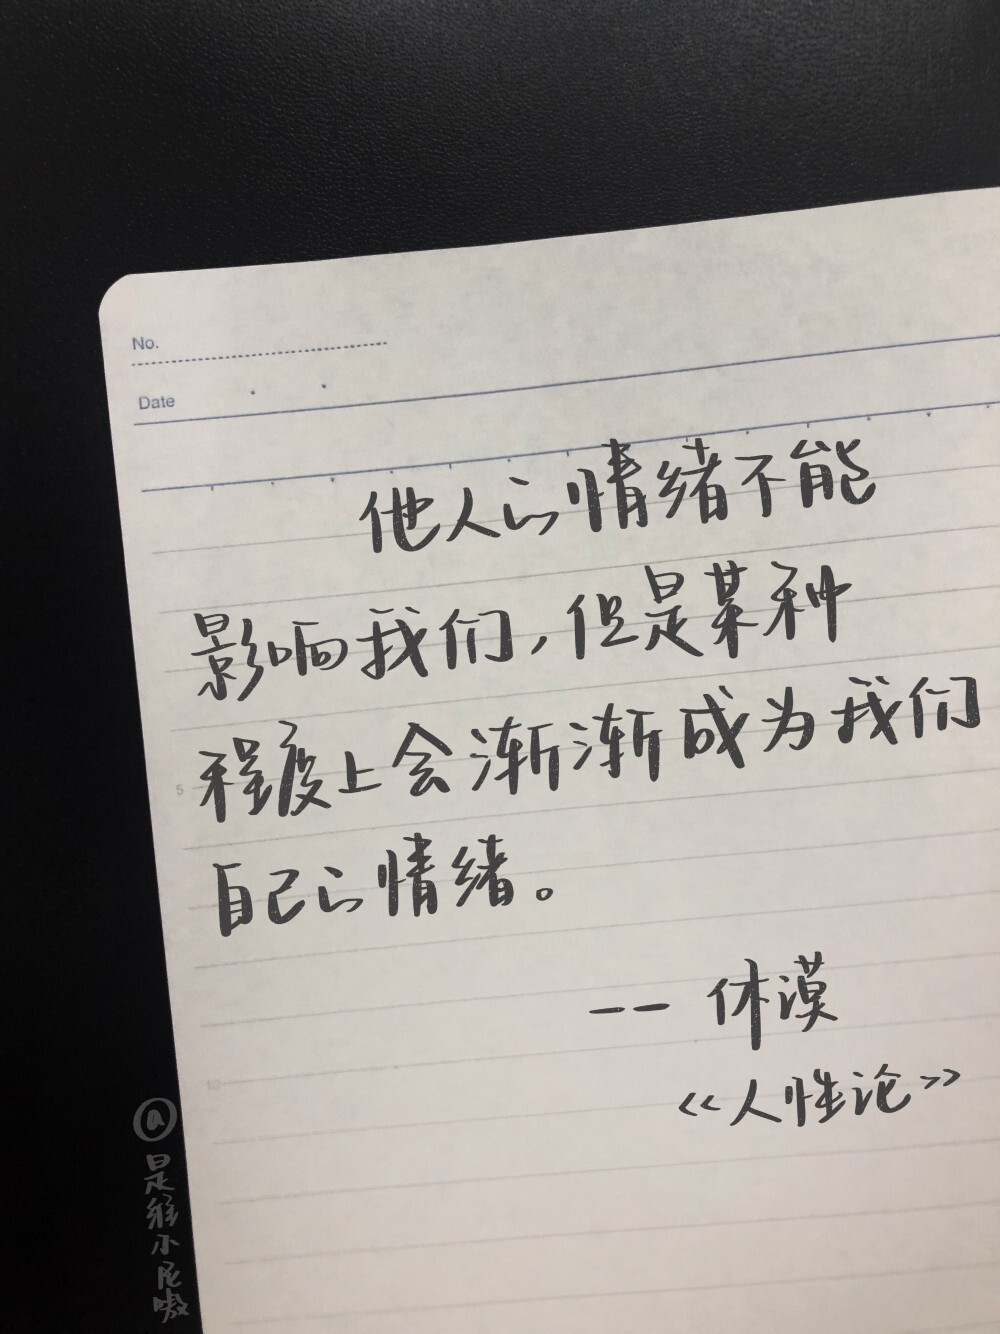 No.
Date
他人的情绪不能
影响我们，但是某种
程度上会渐渐成为我们
5
自己的情绪。
-- 休漠
10
<<人性论>>
@是
小尼嗷